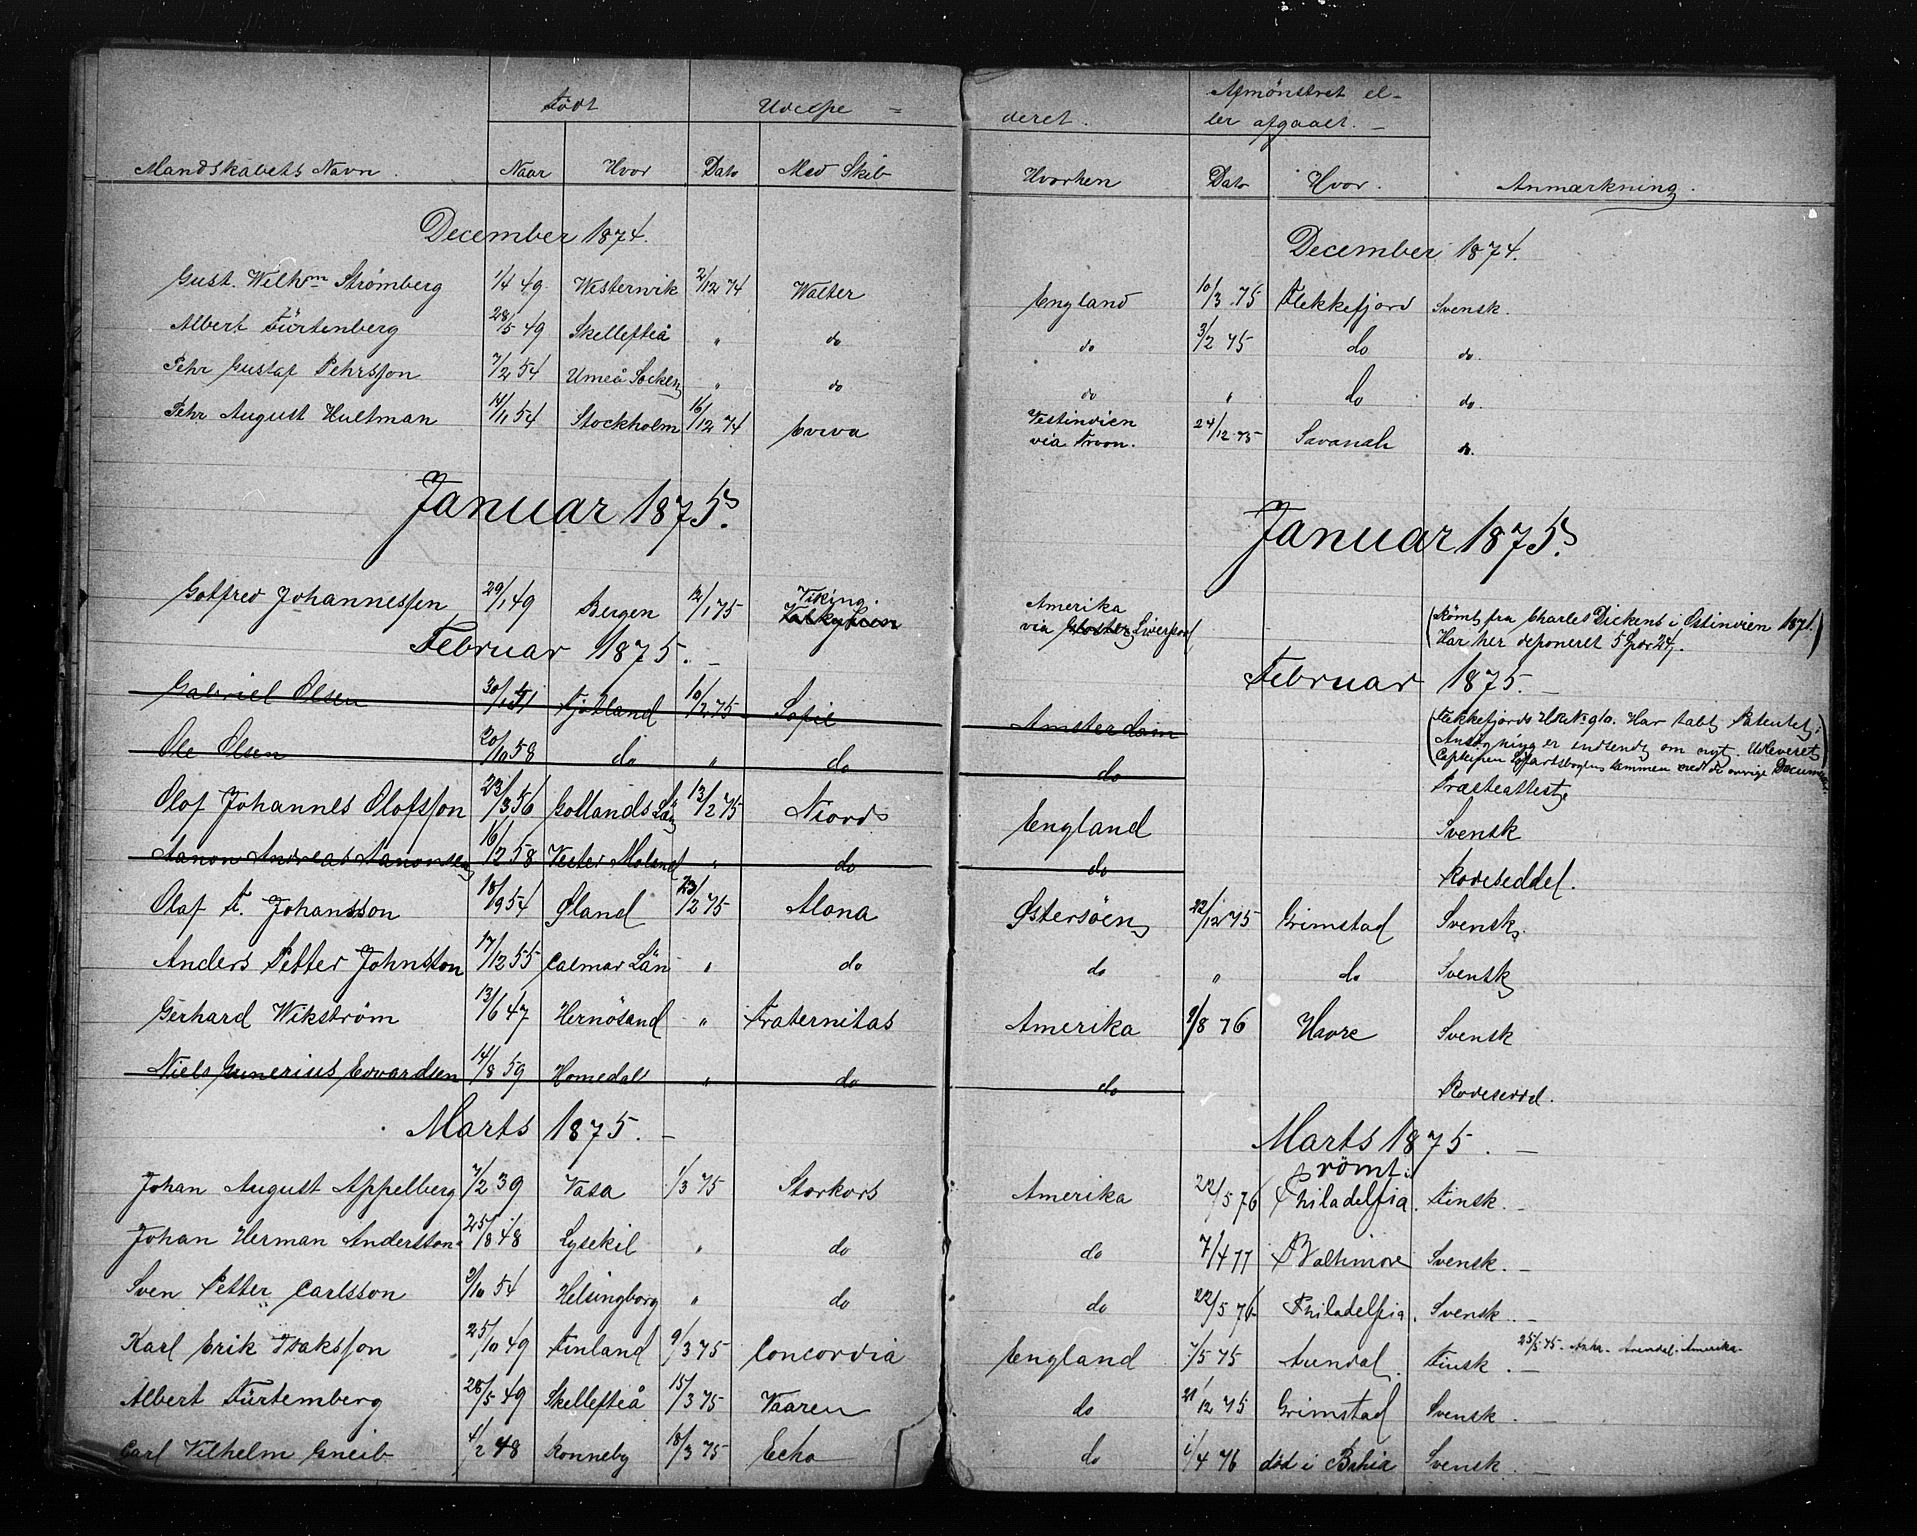 Født Udespe = deret. Afmønstret el-
ler afgaaet. -
Mandskabets Navn. Naar Hvor Dato Med Skib Hvorhen Dato Hvor. Anmærkning.
December 1874. December 1874.
Gust. Wilhm Strømberg 1/4 49 Westerwik 2/12 74 Walter England 10/3 75 Flekkefjord Svensk.
Albert Fürtenberg 28/5 49 Skellefteå " do do 3/2 75 do do.
Pehr Gustaf Pehrsson 7/2 54 Umeå Socken " do do " do do.
Pehr August Hultman 14/11 54 Stockholm 16/12 74 Eviva Vestindien
via Troon. 24/12 75 Savanah do.
Januar 1875. Januar 1875.
Gotfred Johannessen 29/1 49 Bergen 12/1 75 Viking. Amerika
via Gloster Liverpool (Rømt fra Charles Dickens i Ostindien 1871.)
(Har her deponeret 5 Spd 24/.
Februar 1875. - Februar 1875. -
Gabriel Olsen 30/1 51 Fjotland 10/2 75 Sofie Amsterdam (Flekkefjords No 910. Har tabt Patentet;
Ansøgning er indsendt om nyt. Udleveret
Ole Olsen 20/10 58 do " do do Captejnen Søfartsbogen sammen med de øvrige Documenter.
Præsteattest.
Olof Johannes Olofsson 23/3 56 Gotlands Län 13/2 75 Niord England Svensk
Aanon Andreas Aanonsen 16/12 58 Vester Moland " do do Rodeseddel.
Olaf F. Johansson 18/9 54 Øland 23/2 75 Alona Østersøen 22/12 75 Grimstad Svensk.
Anders Petter Johnsson 17/12 55 Calmar Län " do do " do Svensk
Gerhard Wikström 13/6 47 Hernösand " Fraternitas Amerika 8/8 76 Havre Svensk
Niels Gunerius Edvardsen 14/8 59 Homedal " do do Rodeseddel.
Marts 1875. - Marts 1875. -
rømt i
Johan August Appelberg 7/2 39 Vasa 1/3 75 Storkors Amerika 22/5 76 Philadelfia. Finsk. -
Johan Herman Andersson 25/8 48 Lysekil " do do 7/4 77 Baltimore Svensk. -
Sven Petter Carlsson 2/10 54 Helsingborg " do do 22/5 76 Philadelfia. Svensk. -
Karl Erik Isaksson 25/10 49 Finland 9/3 75 Concordia England 7/5 75 Arendal. Finsk. - 25/5 75. Arendal. Amerika
Albert Fürtemberg 28/5 49 Skellefteå 15/3 75 Vaaren do 21/12 75 Grimstad Svensk. -
Carl Vilhelm Gneib 4/2 48 Ronneby 18/3 75 Echo do 1/4 76 død i Bahia Svensk. -